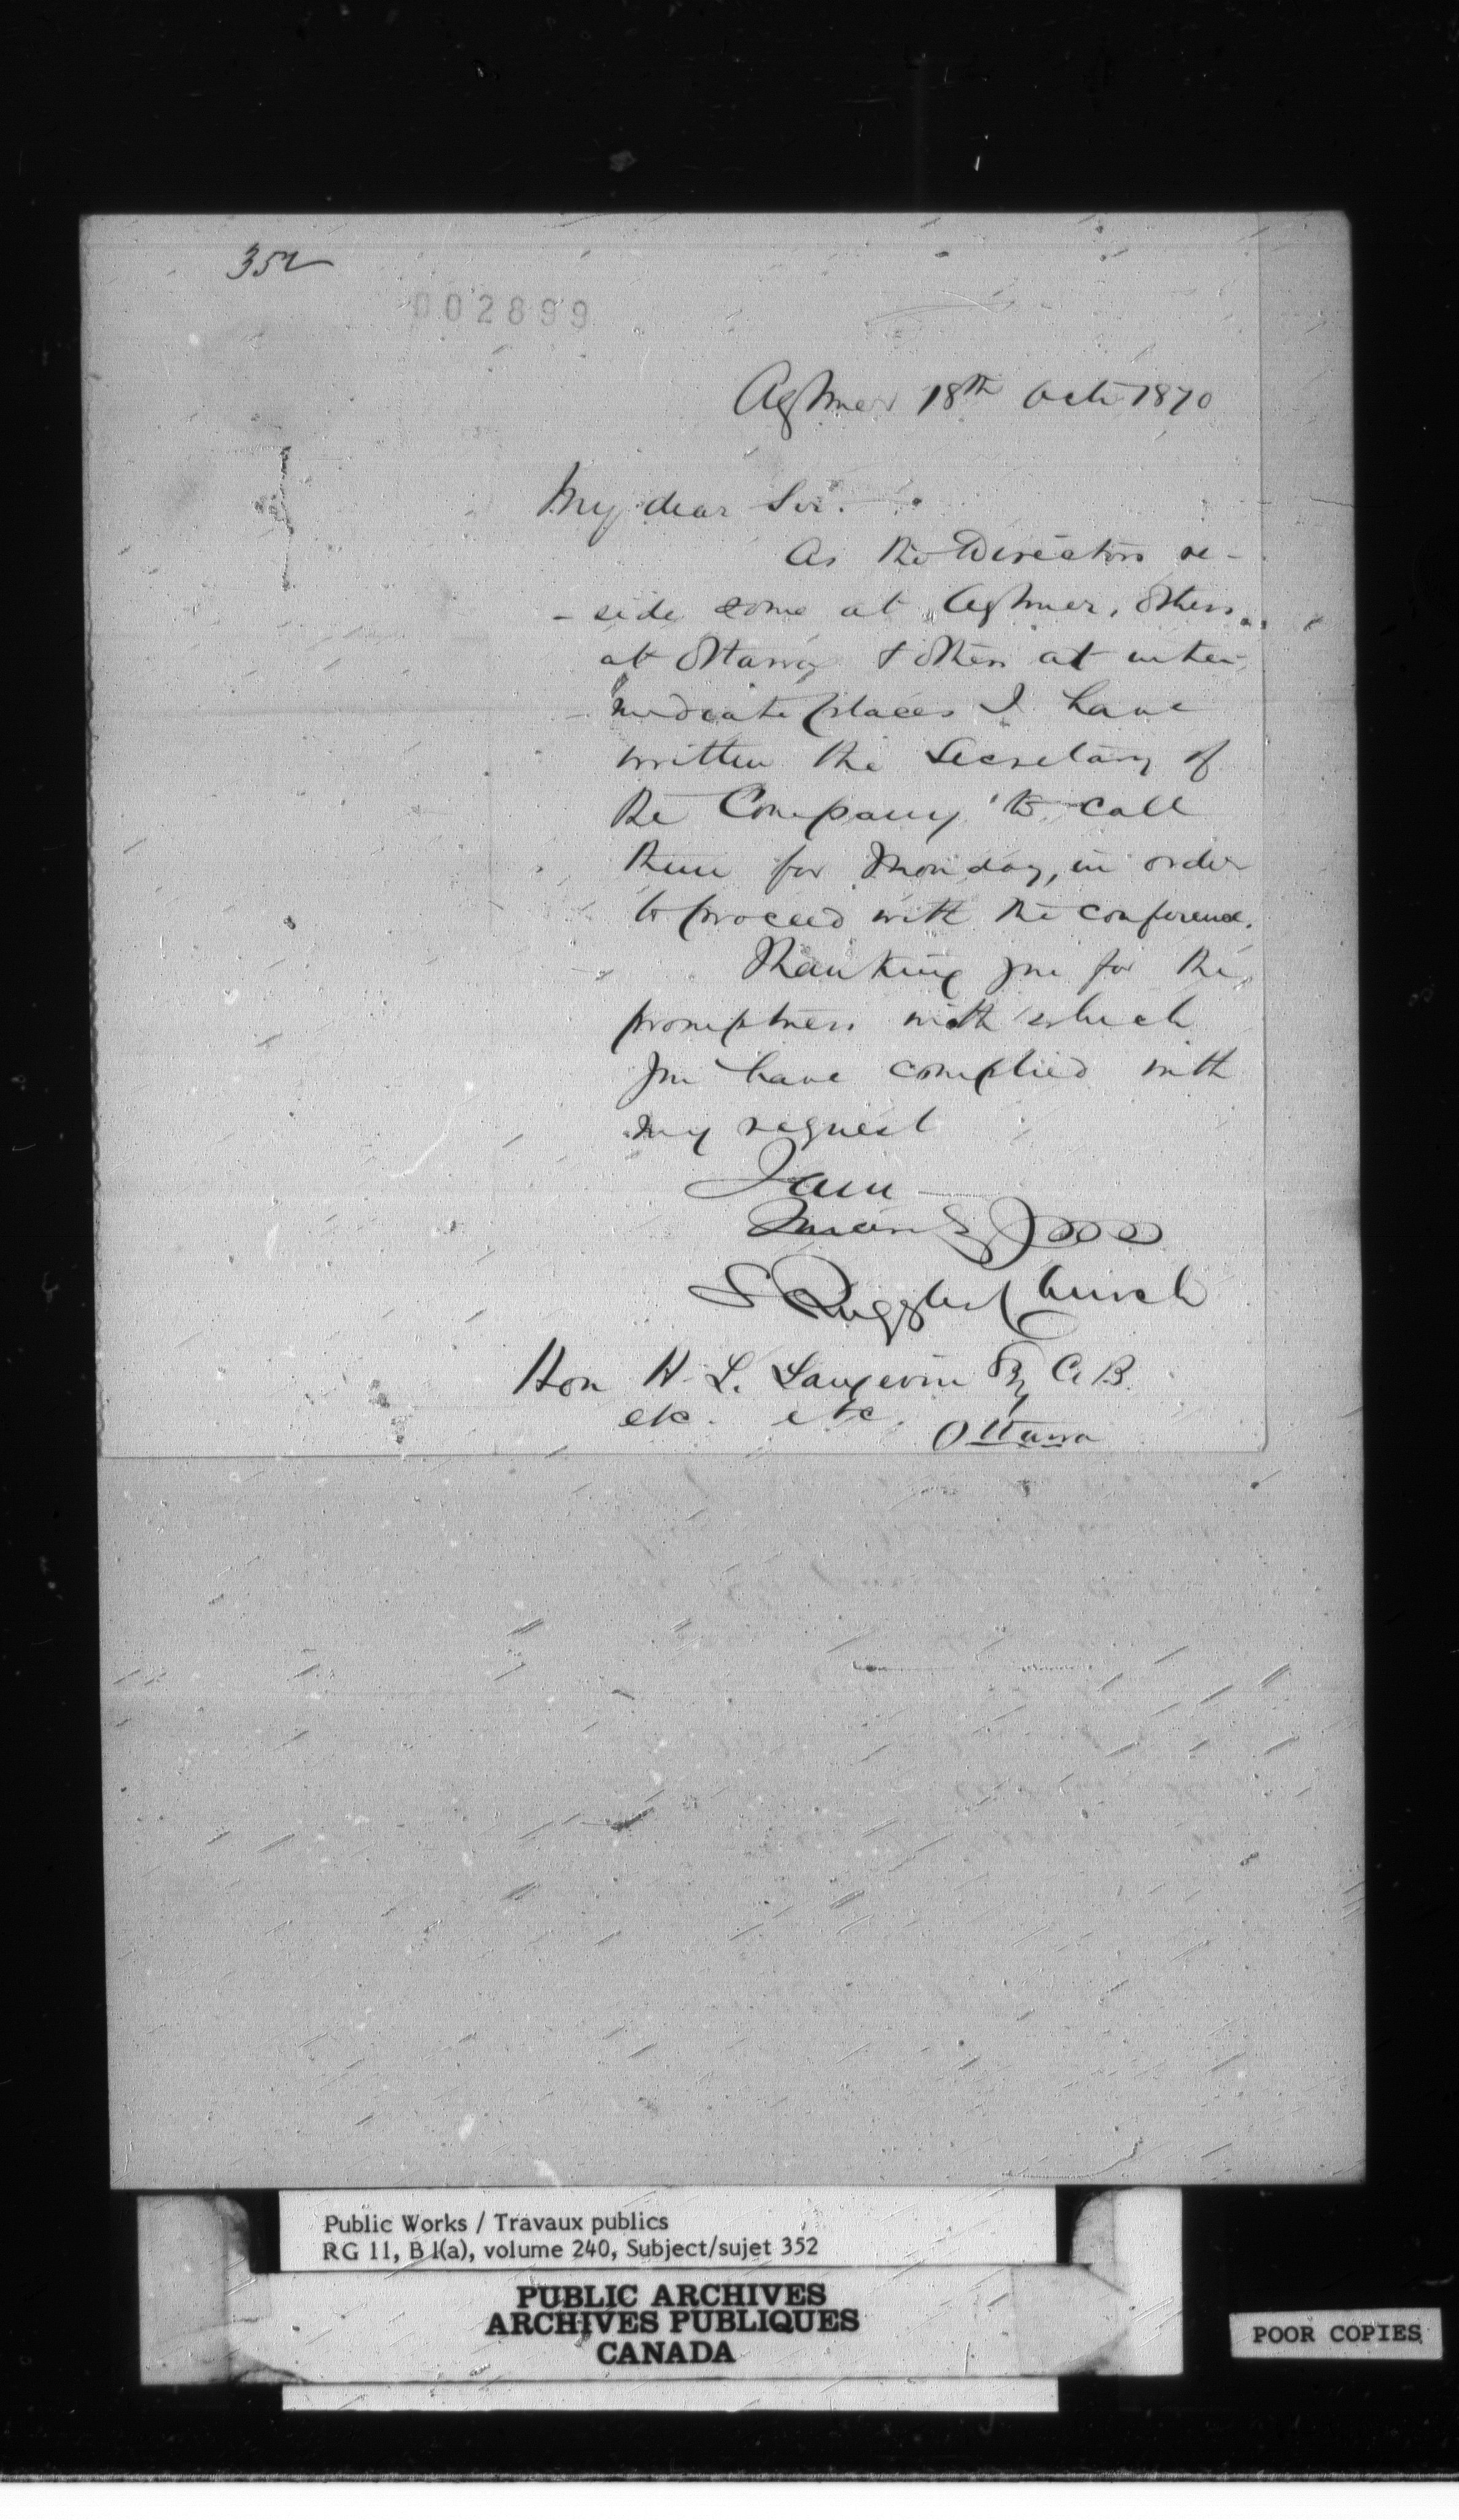 352
002899
Aylmer 18th Oct 1870
My dear Sir.
As the Directors re-
-side some at Aylmer, others
at Ottawa & others at inter-
mediate places I have
written the Secretary of
the Company to call
them for Monday, in order
to proceed with the conference.
Thanking you for the
promptness with which
you have complied with
my request
I am
S Ruggles Church
Hon H. L. Langevin C.B.
etc. etc.
Ottawa
Public Works / Travaux publics
RG 11, B 1(a), volume 240, Subject/sujet 352
PUBLIC ARCHIVES
ARCHIVES PUBLIQUES
CANADA
POOR COPIES